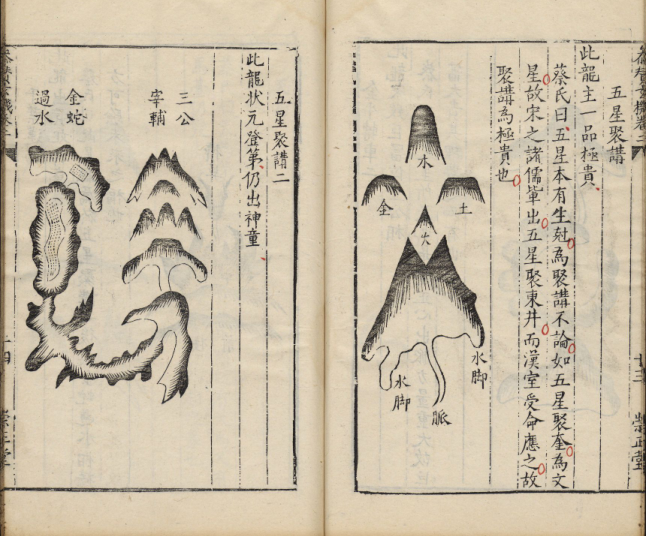 五星聚講
此龍主一品極貴
蔡氏曰五星本有生尅為聚講不論如五星聚奎為文
星故宋之諸儒軰出五星聚東井而漢室受命應之故
聚講為極貴也
木
土
金
火
水脚
水脚
脈
五星聚講二
此龍狀元登第仍出神童
三公
宰輔
金蛇
過水